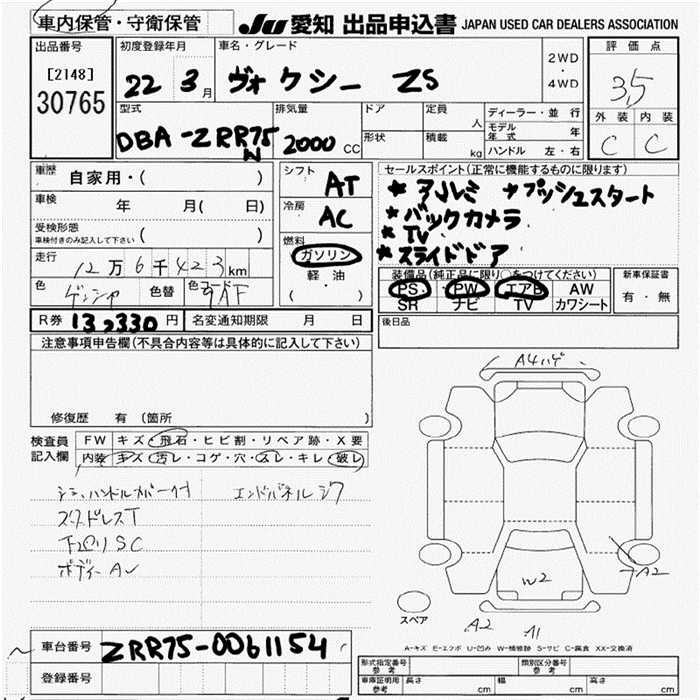 車内保管・守衛保管
JU 愛知 出品申込書 JAPAN USED CAR DEALERS ASSOCIATION
出品番号
[2148]
30765
初度登録年月
22 3月
車名・グレード
ヴォクシー ZS
2WD
・
4WD
評価点
3.5
外装 内装
C C
型式
DBA-ZRR75W
排気量
2000 CC
ドア
形状
定員 人
積載 kg
ディーラー・並行
モデル年式 年
ハンドル 左・右
車歴 自家用・( )
車検 年 月( 日)
受検形態
車検付きのみ記入して下さい ( )
走行 12万6千423km
色 色替 カラーNo
シフト AT
冷房 AC
燃料
ガソリン
軽油
( )
セールスポイント(正常に機能するものに限ります)
★アルミ ★プッシュスタート
★バックカメラ
★TV
★スライドドア
装備品(純正品に限り○をつけてください)
PS PW エアB AW
SR ナビ TV カワシート
新車保証書
有・無
R券 13,330円 名変通知期限 月 日
後日品
注意事項申告欄(不具合内容等は具体的に記入して下さい)
修復歴 有(箇所 )
検査員記入欄
FW キズ・飛石・ヒビ割・リペア跡・X要
内装 キズ 汚レ・コゲ・穴・スレ・キレ・破レ
シミ、ハンドルカバー付 エンドパネルシワ
スタッドレスT
下廻りSC
ボディーAU
A4ハゲ
W2
A2
A2
A1
スペア
A-キズ E-エクボ U-凹み W-補修跡 S-サビ C-腐食 XX-交換済
車台番号 ZRR75-0061154
登録番号
形式指定番号 参考
類別区分番号 参考
車庫証明用 参考 長さ cm 幅 cm 高さ cm